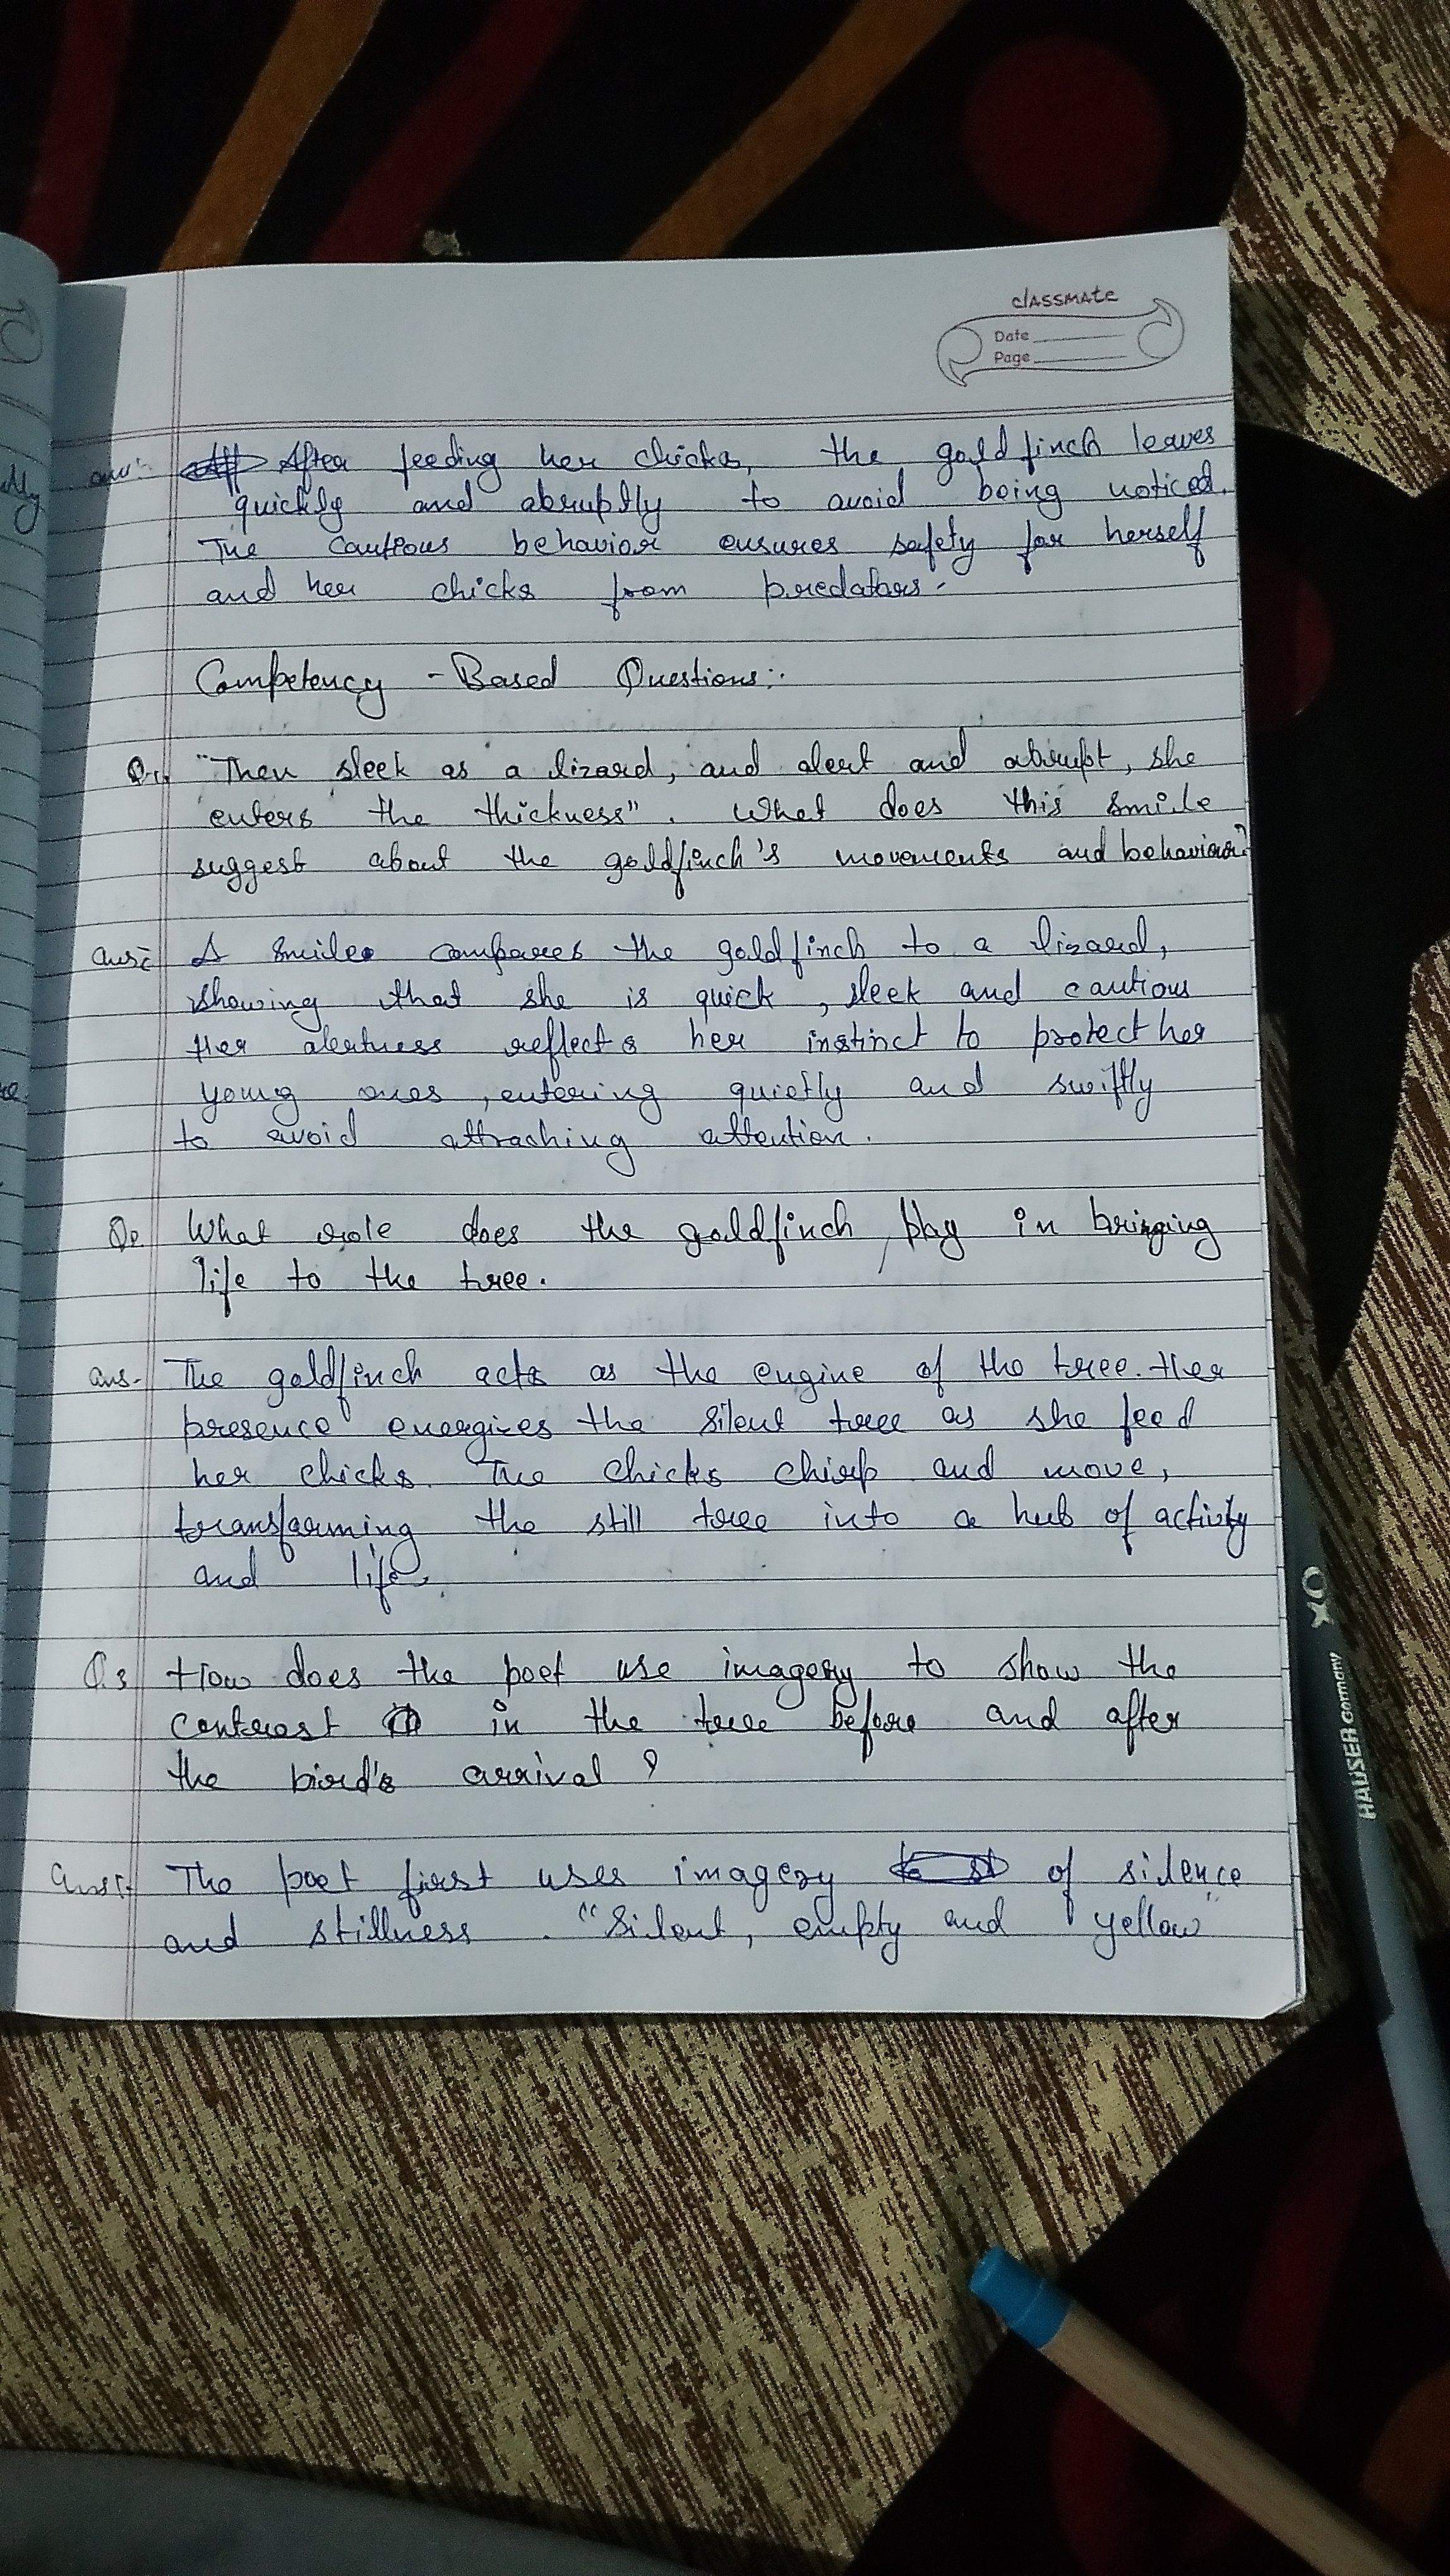 classmate
Date
Page
ans:- After feeding her chicks, the goldfinch leaves
quickly and abruptly to avoid being noticed.
The cautious behavior ensures safety for herself
and her chicks from predators.
Competency - Based Questions:-
Q1. "Then sleek as a lizard, and alert and abrupt, she
enters the thickness". What does this smile
suggest about the goldfinch's movements and behavior?
Ans:- A smile compares the goldfinch to a lizard,
showing that she is quick, sleek and cautious
Her alertness reflects her instinct to protect her
young ones, entering quietly and swiftly
to avoid attraching attention.
Q2 What role does the goldfinch play in bringing
life to the tree.
ans- The goldfinch acts as the engine of the tree. Her
presence energizes the silent tree as she feed
her chicks. The chicks chirp and move,
transforming the still tree into a hub of activity
and life.
Q.3 How does the poet use imagery to show the
contrast in the tree before and after
the bird's arrival ?
Ans:- The poet first uses imagery of silence
and stillness. "Silent, empty and yellow"
XO
HAUSER Germany